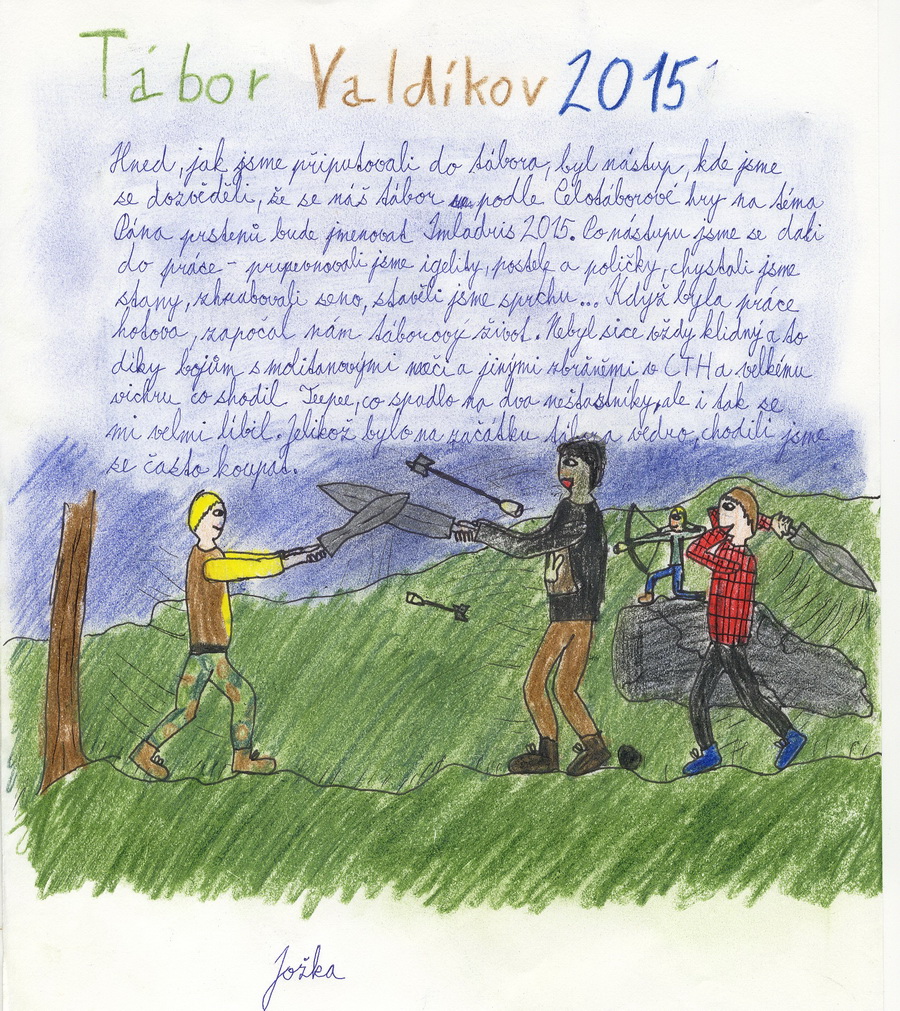 Tábor Valdíkov 2015
Hned, jak jsme připutovali do tábora, byl nástup, kde jsme
se dozvěděli, že se náš tábor podle Celotáborové hry na téma
Pána prstenů bude jmenovat Imladris 2015. Po nástupu jsme se dali
do práce - připevnovali jsme igelity, postele a poličky, chystali jsme
stany, shrabovali seno, stavěli jsme sprchu... Když byla práce
hotova, započal nám táborový život. Nebyl sice vždy klidný a to
díky bojům s molitanovými meči a jinými zbraněmi v CTH a velkému
vichru co shodil Teepee, co spadlo na dva nešťastníky, ale i tak se
mi velmi líbil. Jelikož bylo na začátku tábora vedro, chodili jsme
se často koupat.
Jožka